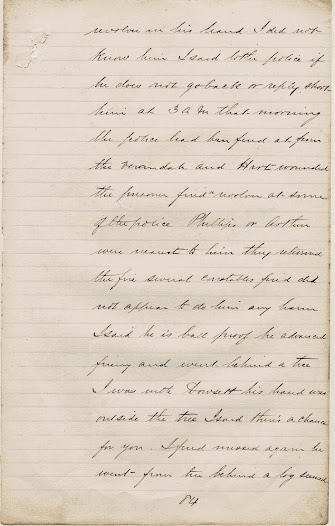 revolver in his hand I did not
know him I said to the police if
he does not go back or reply shoot
him at 3 AM that morning
the police had been fired at from
the verandah and Hart wounded
the prisoner fired a revolver at some
of the police Phillips or Arthur
were nearest to him they returned
the fire several constables fired did
not appear to do him any harm
I said he is ball proof he advanced
firing and went behind a tree
I was with Dowsett his hand was
outside the tree I said there's a chance
for you. I fired missed again he
went from tree behind a log seemed
84